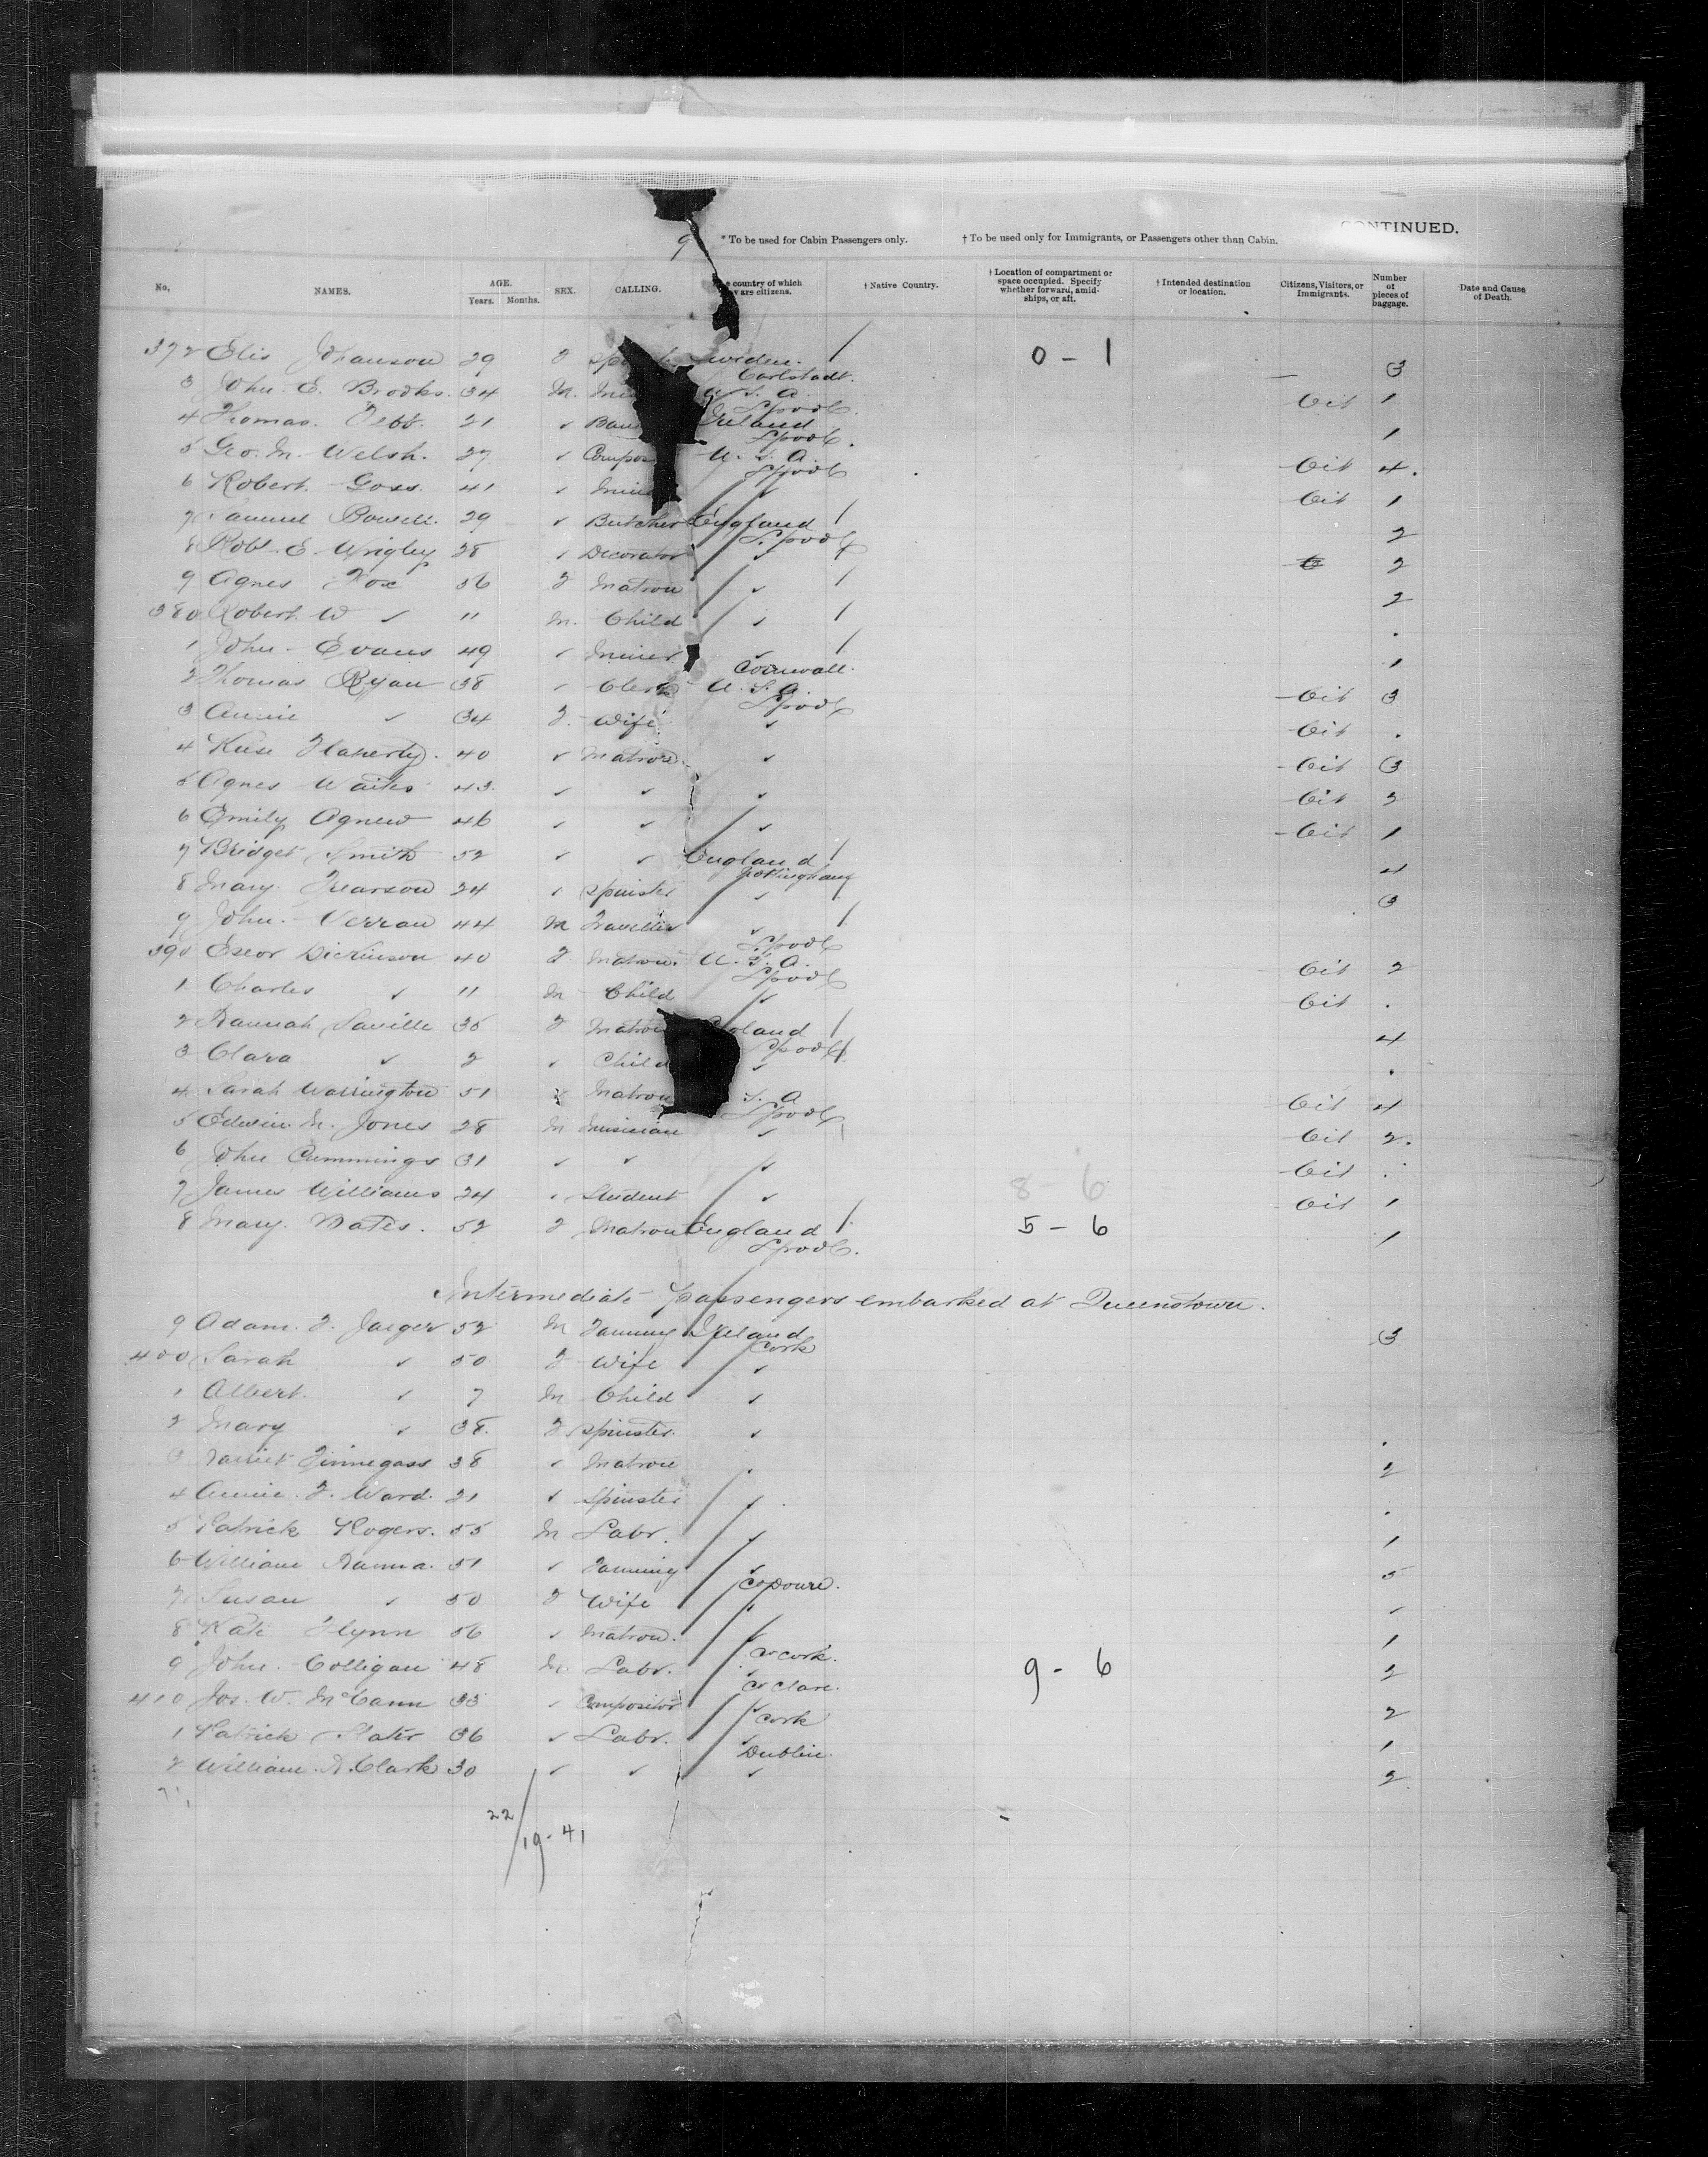 CONTINUED.
9 * To be used for Cabin Passengers only. † To be used only for Immigrants, or Passengers other than Cabin.
No. NAMES. AGE. Years. Months. SEX. CALLING. country of which are citizens. † Native Country. † Location of compartment or space occupied. Specify whether forward, amidships, or aft. † Intended destination or location. Citizens, Visitors, or Immigrants. Number of pieces of baggage. Date and Cause of Death.
372 Elis Johanson 29 F Sweden. / 0 - 1 3
Carlstadt.
3 John E. Brooks. 34 M. U.S.A. Cit 1
Lpool.
4 Thomas 21 ✓ Ireland 1
Lpool.
5 Geo. M. Welsh. 27 ✓ U.S.A. Cit 4.
Lpool
6 Robert Goss. 41 ✓ ✓ Cit 1
7 Samuel Powell. 29 ✓ Butcher England / 2
Lpool
8 Robt. E. Wrigley 28 ✓ Decorator ✓ 2
9 Agnes Fox 36 F Matron ✓ / 2
380 Robert W ✓ 11 M. Child ✓ / .
1 John Evans 49 ✓ Miner ✓ / 1
Cornwall.
2 Thomas Ryan 38 ✓ Clerk U.S.A. Cit 3
Lpool
3 Annie ✓ 34 F. Wife ✓ Cit .
4 Flaherty. 40 ✓ Matron. ✓ Cit 3
5 Agnes Waites 43. ✓ ✓ ✓ Cit 2
6 Emily Agnew 46 ✓ ✓ ✓ Cit 1
7 Bridget Smith 52 ✓ ✓ England / 4
Nottingham
8 Mary Pearson 24 ✓ Spinster ✓ 3
9 John Verran 44 M Traveller ✓ /
Lpool
390 Dickinson 40 F Matron U.S.A. Cit 2
Lpool
1 Charles ✓ 11 M Child ✓ Cit .
2 Hannah Saville 35 F Matron England / 4
Lpool
3 Clara ✓ 2 ✓ Child ✓ .
4 Sarah Warrington 51 Matron S. A Cit 4
Lpool
5 Edwin M. Jones 28 M Musician ✓ Cit 2.
6 John Cummings 31 ✓ ✓ ✓ Cit .
7 James Williams 24 ✓ Student ✓ 8 - 6 Cit 1
8 Mary Bates. 52 F Matron England / 5 - 6 1
Lpool.
Intermediate passengers embarked at Queenstown.
9 Adam F. Jaeger 52 M Farming Ireland 3
Cork
400 Sarah ✓ 50 F Wife ✓
1 Albert ✓ 7 M Child ✓
2 Mary ✓ 38. F Spinster. ✓ .
3 Finnegass 38 ✓ Matron 2
4 Annie F. Ward. 21 ✓ Spinster ✓ .
5 Patrick Rogers. 55 M Labr. ✓ 1
6 William Hanna. 51 ✓ Farming ✓ 5
Co Down.
7 Susan ✓ 50 F Wife ✓
8 Kate Flynn 56 ✓ Matron. ✓ 1
Co Cork.
9 John Colligan 48 M. Labr. ✓ 9 - 6 2
Co Clare.
410 Jos. W. McCann 33 ✓ Compositor ✓ 2
Cork
1 Patrick Slater 36 ✓ Labr. ✓ 1
Dublin.
2 William A. Clark 30 ✓ ✓ ✓ 2
22/19 - 41